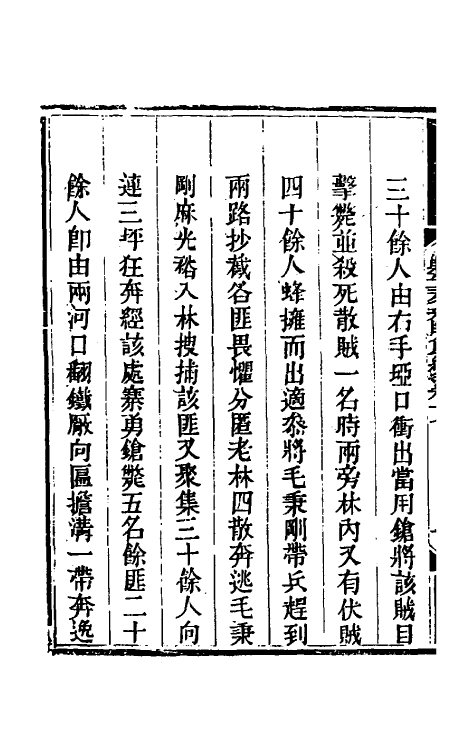 三十餘人由右手埡口衝出當用鎗將該賊目
擊斃並殺死散賊一名時兩旁林內又有伏賊
四十餘人蜂擁而出適叅將毛秉剛帶兵趕到
兩路抄截各匪畏懼分匿老林四散奔逃毛秉
剛麻光裕入林搜捕該匪又聚集三十餘人向
連三坪狂奔經該處寨勇鎗斃五名餘匪二十
餘人卽由兩河口翻鐵厰向匾擔溝一帶奔逸